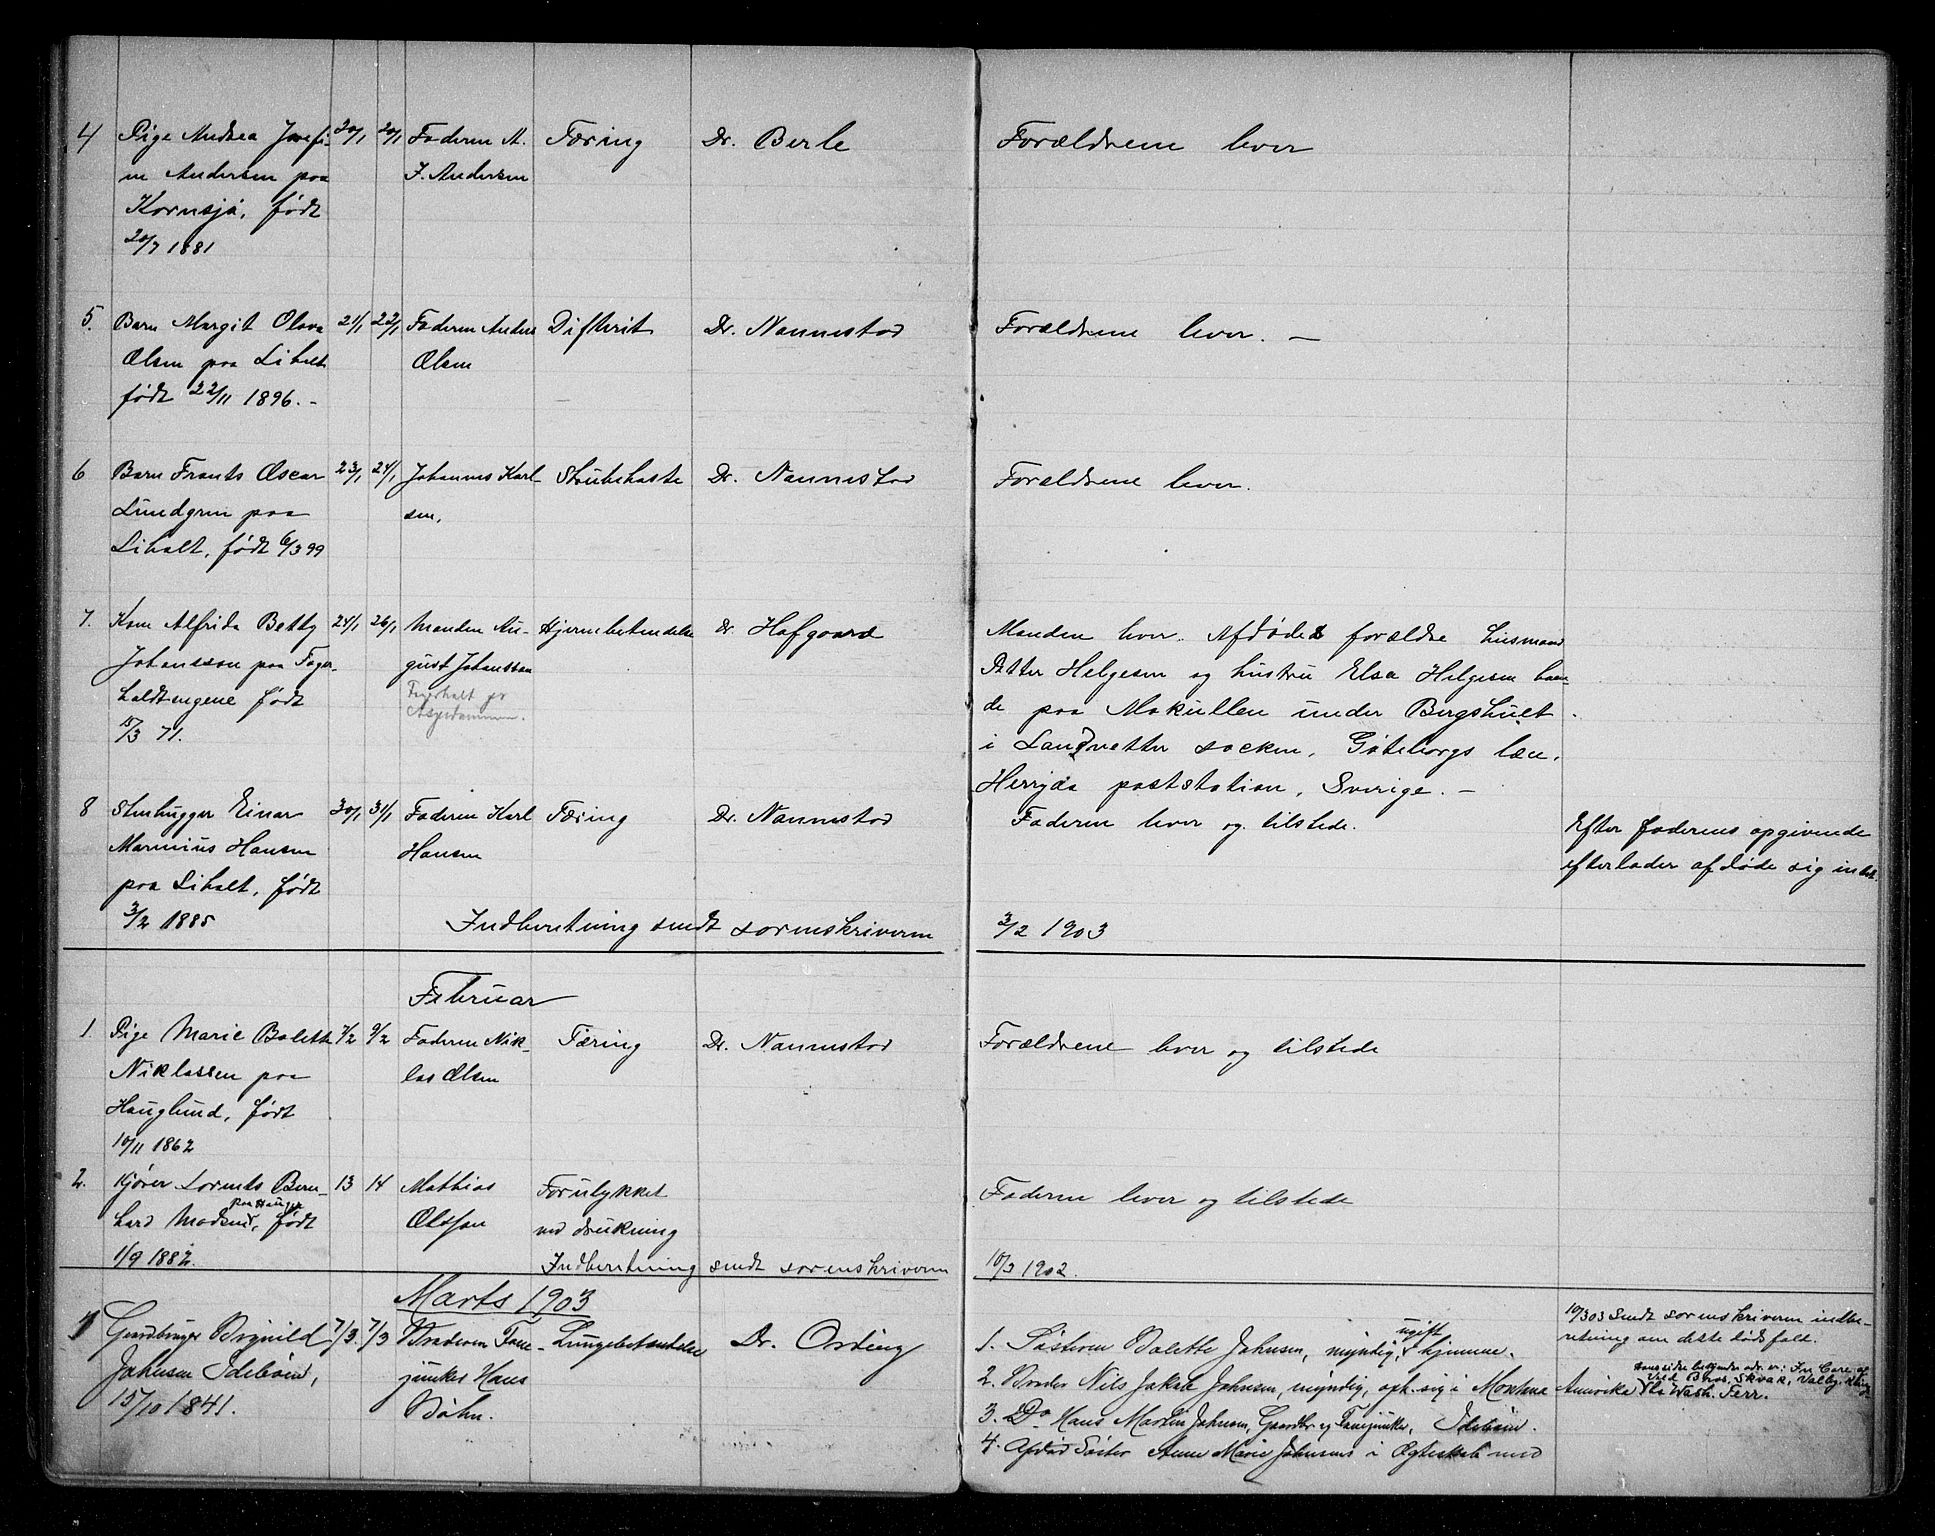 4 Pige Andrea Josefi- 20/1 20/1 Faderen A. Tæring Dr. Berle Forældrene lever
ne Andersen paa J. Andersen
Kornsjø, født
20/7 1881
5. Barn Margit Olava 21/1 22/1 Faderen Anders Difterit Dr. Nannestad Forældrene lever. –
Olsen paa Liholt Olsen
født 22/11 1896. –
6 Barn Frants Oscar 23/1 24/1 Johannes Karl- Strubehoste Dr. Nannestad Forældrene lever.
Lundgren paa sen.
Liholt, født 6/3 99
7. Kone Alfrida Betty 24/1 26/1 Manden Au- Hjernebetændelse Dr. Hafgaard Manden lever. Afdødes forældre husmand
Johansson paa Fager- gust Johansson Petter Helgesen og hustru Elsa Helgesen boen-
holdtengene født Fagerholt pr de paa Makullen under Bergshult
15/3 71. Aspedammen. i Landvetter socken, Gøteborgs læn,
Herryda poststation, Sverige. –
8 Stenhugger Einar 30/1 31/1 Faderen Karl Tæring Dr. Nannestad Faderen lever og tilstede. Efter faderens opgivende
Marinius Hansen Hansen efterlader afdøde sig intet.
paa Liholt, født
3/2 1885 Indberetning sendt sorenskriveren 3/2 1903
Februar
1. Pige Marie Bolette 7/2 9/2 Faderen Nik- Tæring Dr. Nannestad Forældrene lever og tilstede
Niklassen paa las Olsen
Hauglund, født
10/11 1862
2. Kjører Lorents Bern- 13 14 Mathias Forulykket Faderen lever og tilstede
paa Hauge
hard Madsen, født Olofsen ved drukning
1/9 1882. Indberetning sendt sorenskriveren 10/3 1902.
Marts 1903
1 Gaardbruger Brynild 7/3. 7/3 Broderen Tane- Lungebetændelse Dr. Ording 1. Søsteren Bolette Johnsen, myndig, ugift hjemme. 10/3 03 Sendt sorenskriveren indbe-
retning om dette dødsfald.
Johnsen Idebøen, junker Hans 2. Broder Nils Jakob Johnsen, myndig, oph. sig i Amerika
15/10 1841. Bøhn. 3. Do Hans Martin Johnsen, Gaardbr og Tanejunker, Idebøen. Wash. Terr.
4. Afdød Søster Anne Marie Johnsens i Ægteskab med